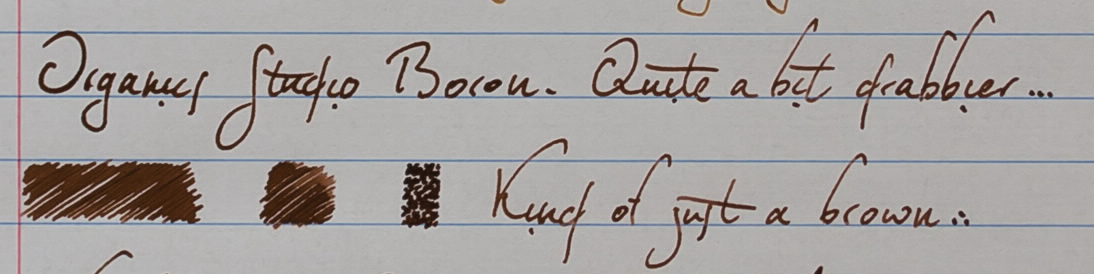 Organics Studio Boron. Quite a bit drabbier...
Kind of just a brown...